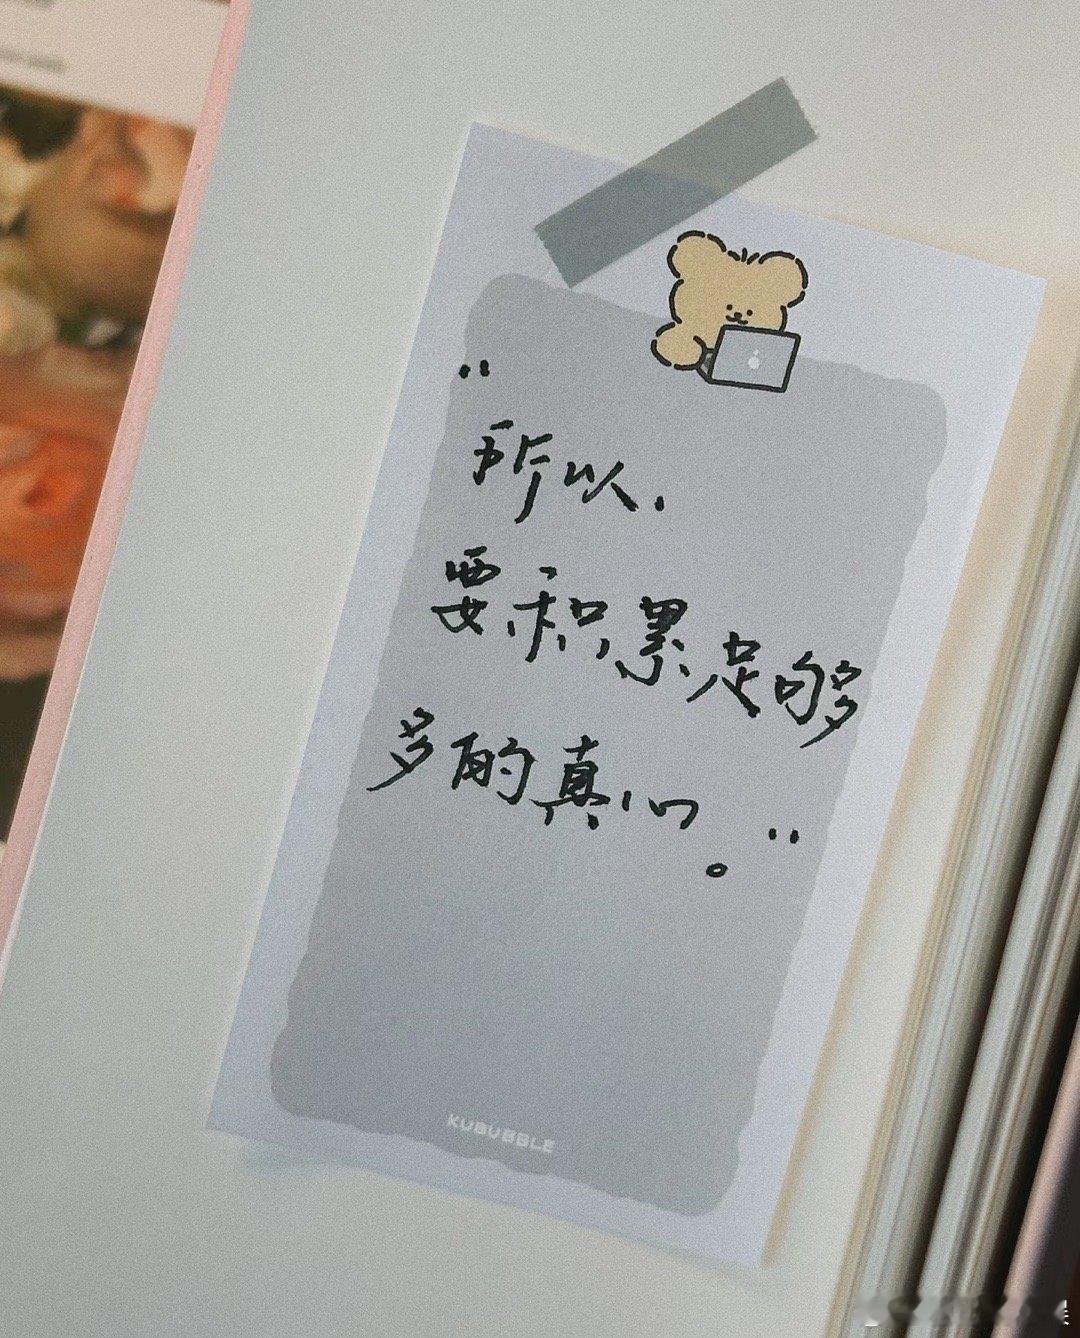 "
所以,
要积累足够
多的真心。"
KUBUBBLE